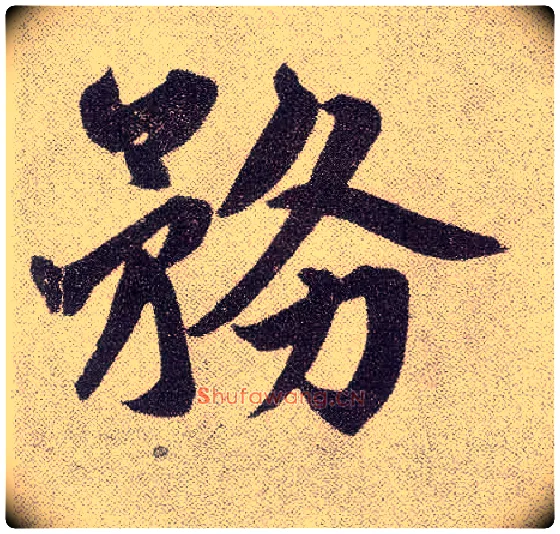 務
Shufawang.CN